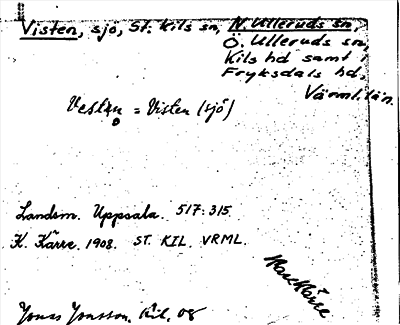 Visten, sjö, St. Kils sn, N. Ulleruds sn,
Ö. Ulleruds sn,
Kils hd samt i
Fryksdals hd,
Värml. län.
= Visten (sjö)
Landsm. Uppsala. 517:315
K. Kärre. 1908. ST. KIL. VRML.
Kärre
Jonas Jonsson, Kil, 08